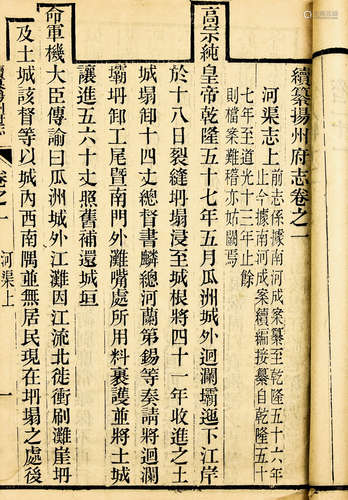 續纂揚州府志卷之一
河渠志上
前志係據南河成案纂至乾隆五十六年
止今據南河成案續編接纂自乾隆五十
七年至道光十三年止餘
則檔案難稽亦姑闕焉
高宗純皇帝乾隆五十七年五月瓜洲城外迴瀾壩迤下江岸
於十八日裂縫坍塌浸至城根將四十一年收進之土
城塌卸十四丈總督書麟總河蘭第錫等奏請將迴瀾
壩坍卸工尾暨南門外灘嘴處所用料裹護並將土城
讓進五六十丈照舊補還城垣
命軍機大臣傳諭曰瓜洲城外江灘因江流北徙衝刷灘崖坍
及土城該督等以城內西南隅並無居民現在坍塌之處後
卷之一
河渠上
一